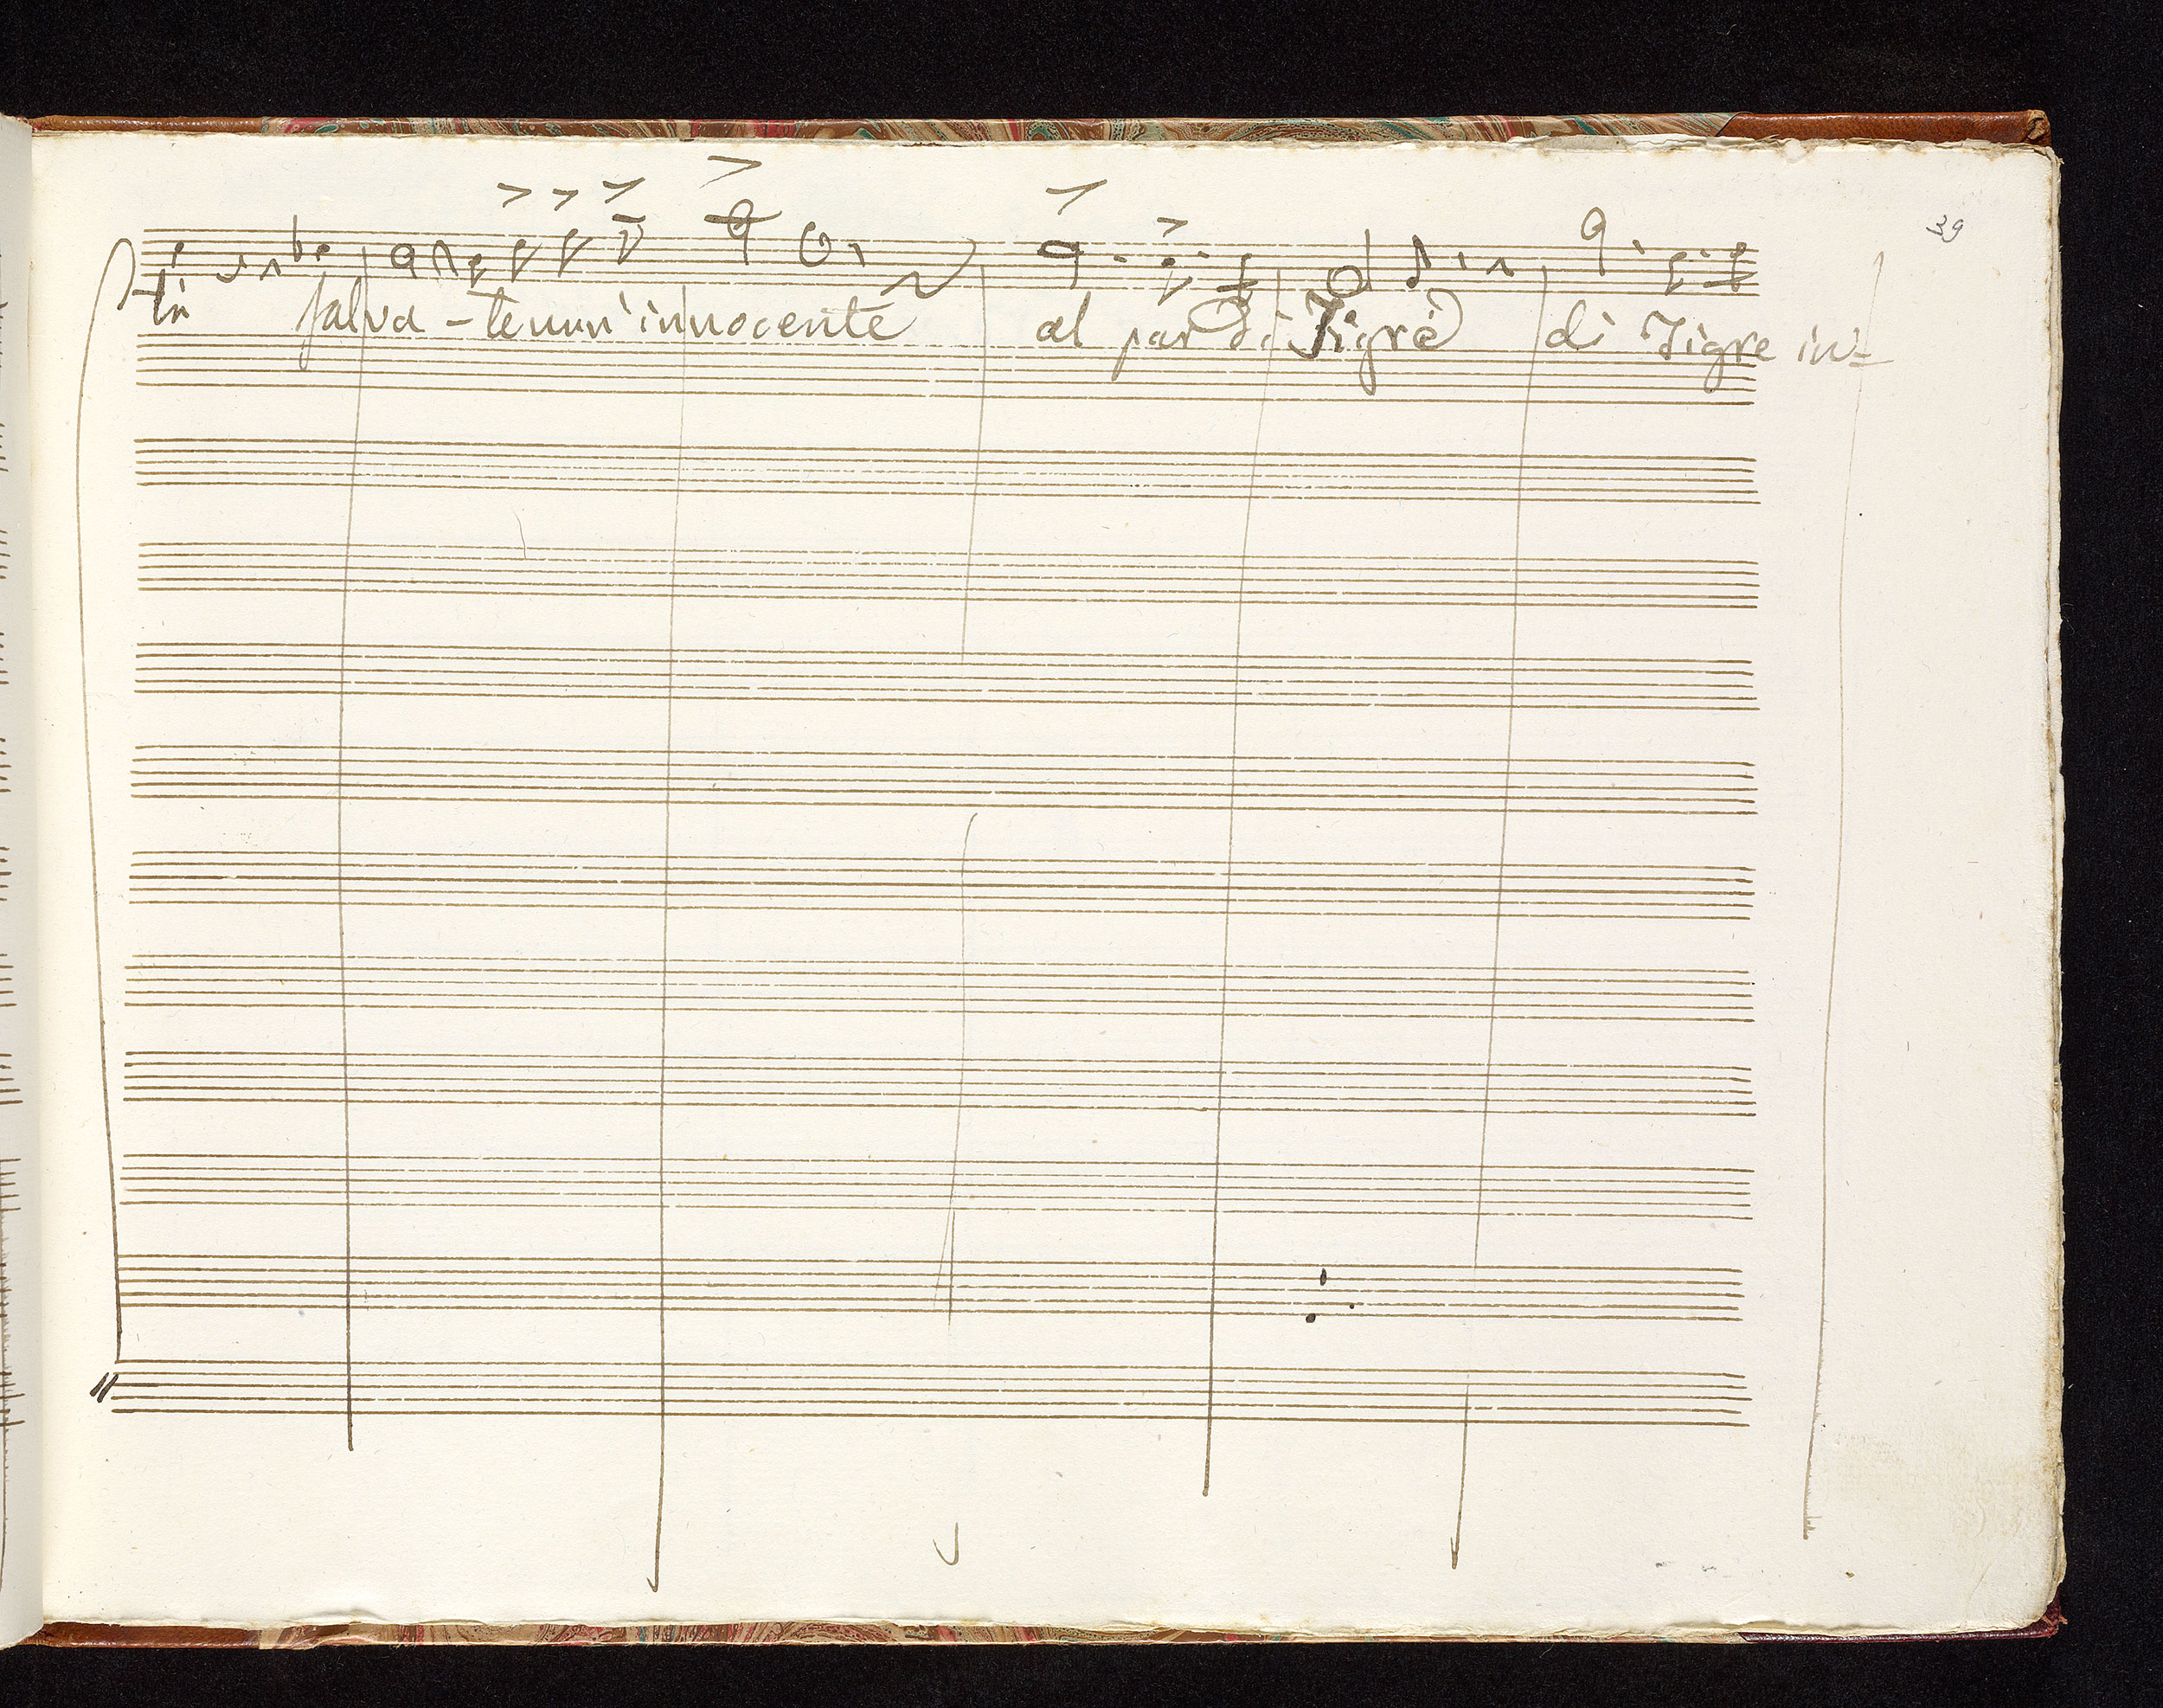 39
ti salva - temun' innocente al par di Tigre di Tigre in-